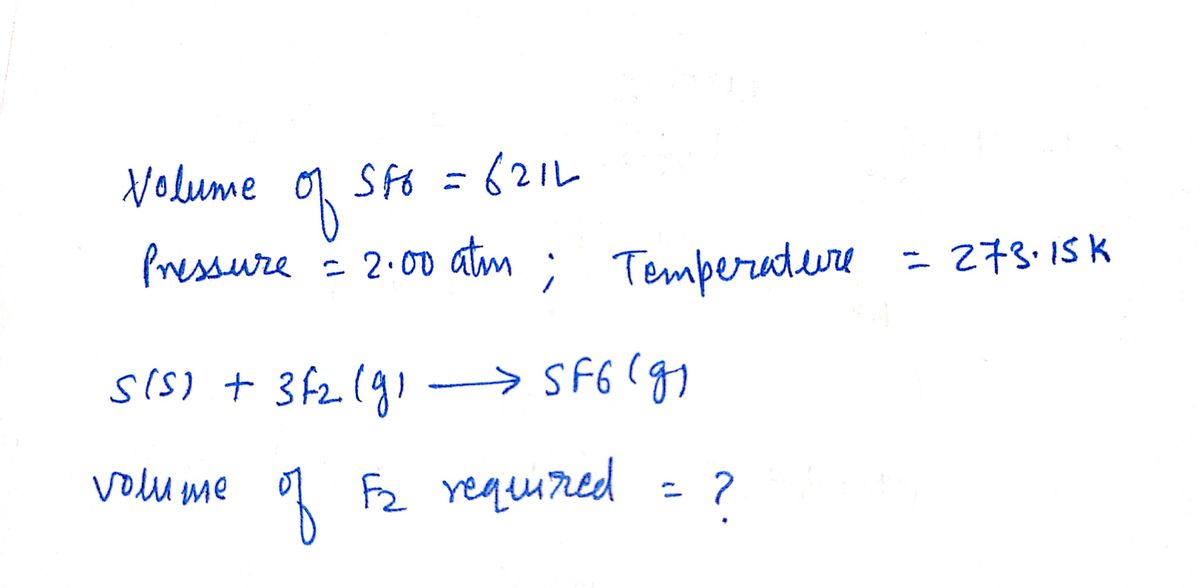 Volume of SF6 = 621L
Pressure = 2.00 atm ; Temperature = 273.15K
S(S) + 3F2(g) ⟶ SF6(g)
volume of F2 required = ?